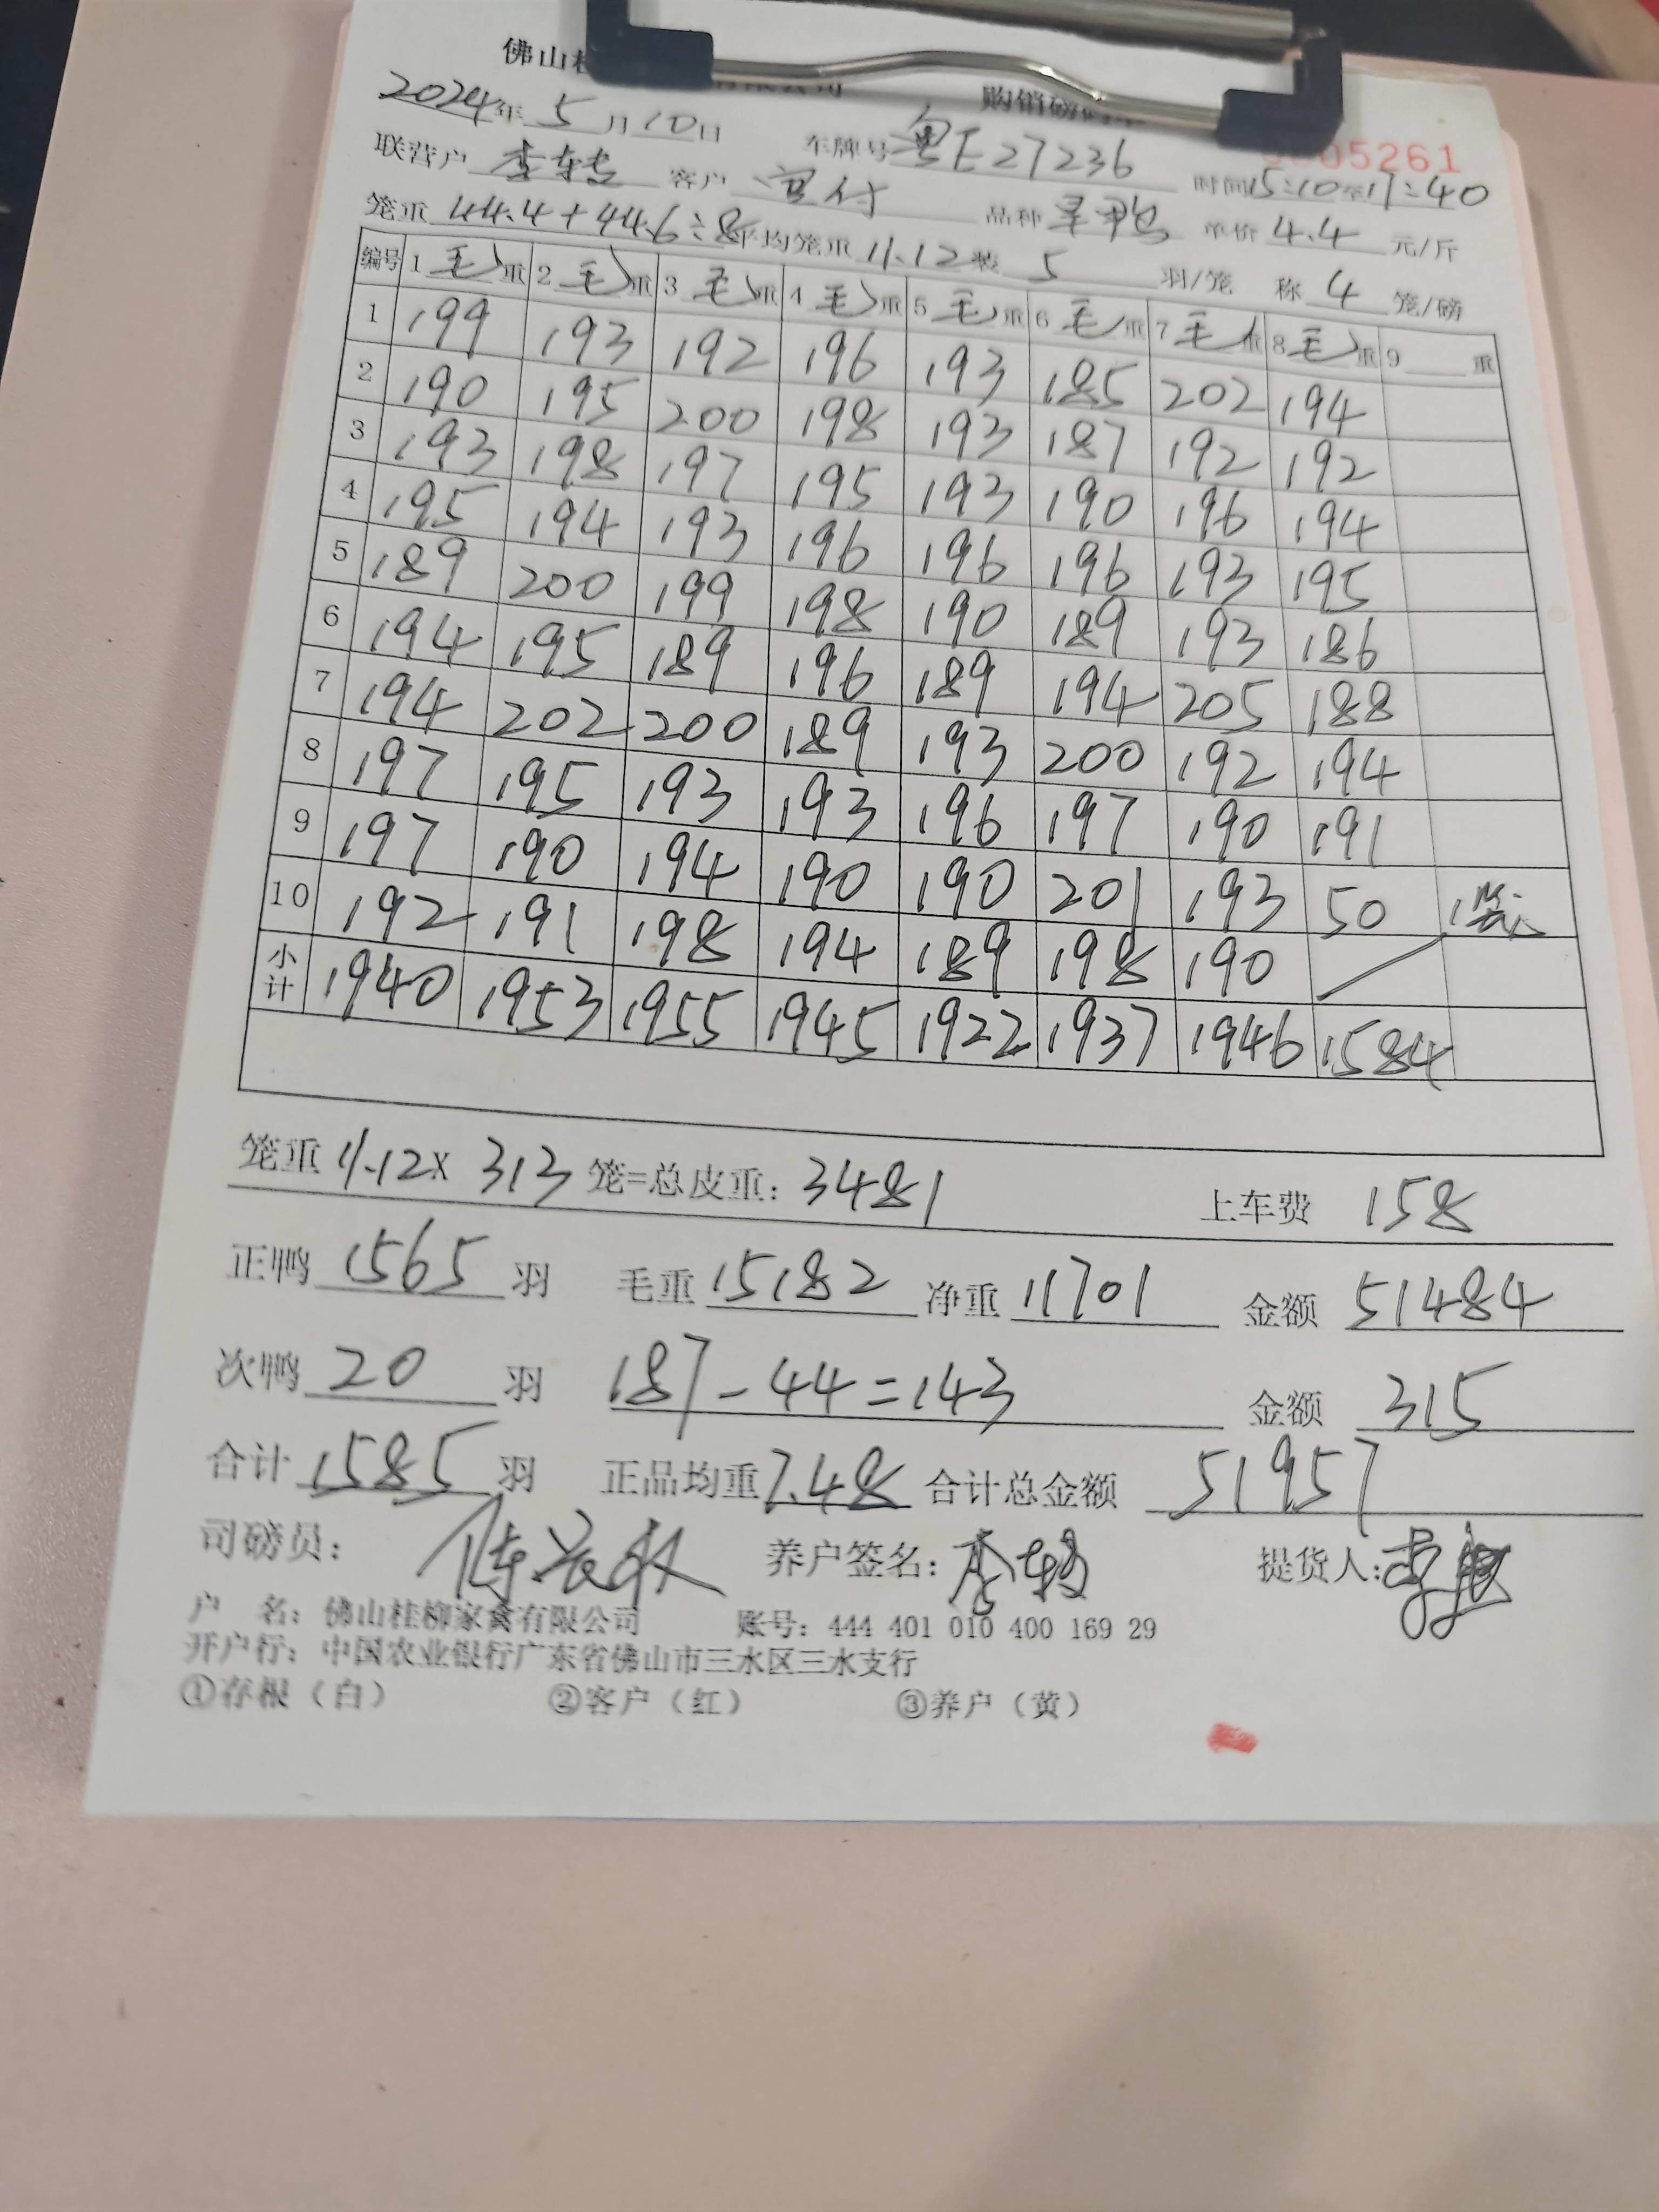 佛山桂
有限公司 购销磅码单
2024年 5 月 10 日 车牌号 粤E27236 05261
联营户 客户 品种 时间 15:10至17:40
笼重 44.4+44.6÷8 平均笼重 11.12 装 5 羽/笼 称 4 笼/磅 单价 4.4 元/斤
编号 1 毛重 2 毛重 3 毛重 4 毛重 5 毛重 6 毛重 7 毛重 8 毛重 9 重
1 199 193 192 196 193 185 202 194
2 190 195 200 198 193 187 192 192
3 193 198 197 195 193 190 196 194
4 195 194 193 196 196 196 193 195
5 189 200 199 198 190 189 193 186
6 194 195 189 196 189 194 205 188
7 194 202 200 189 193 200 192 194
8 197 195 193 193 196 197 190 191
9 197 190 194 190 190 201 193 50 1笼
10 192 191 198 194 189 198 190 /
小计 1940 1953 1955 1945 1922 1937 1946 1584
笼重 11.12x 313 笼=总皮重: 3481 上车费 158
正鸭 1565 羽 毛重 15182 净重 11701 金额 51484
次鸭 20 羽 187-44=143 金额 315
合计 1585 羽 正品均重 7.48 合计总金额 51957
司磅员: 养户签名: 提货人:
户 名: 佛山桂柳家禽有限公司 账号: 444 401 010 400 169 29
开户行: 中国农业银行广东省佛山市三水区三水支行
①存根（白） ②客户（红） ③养户（黄）